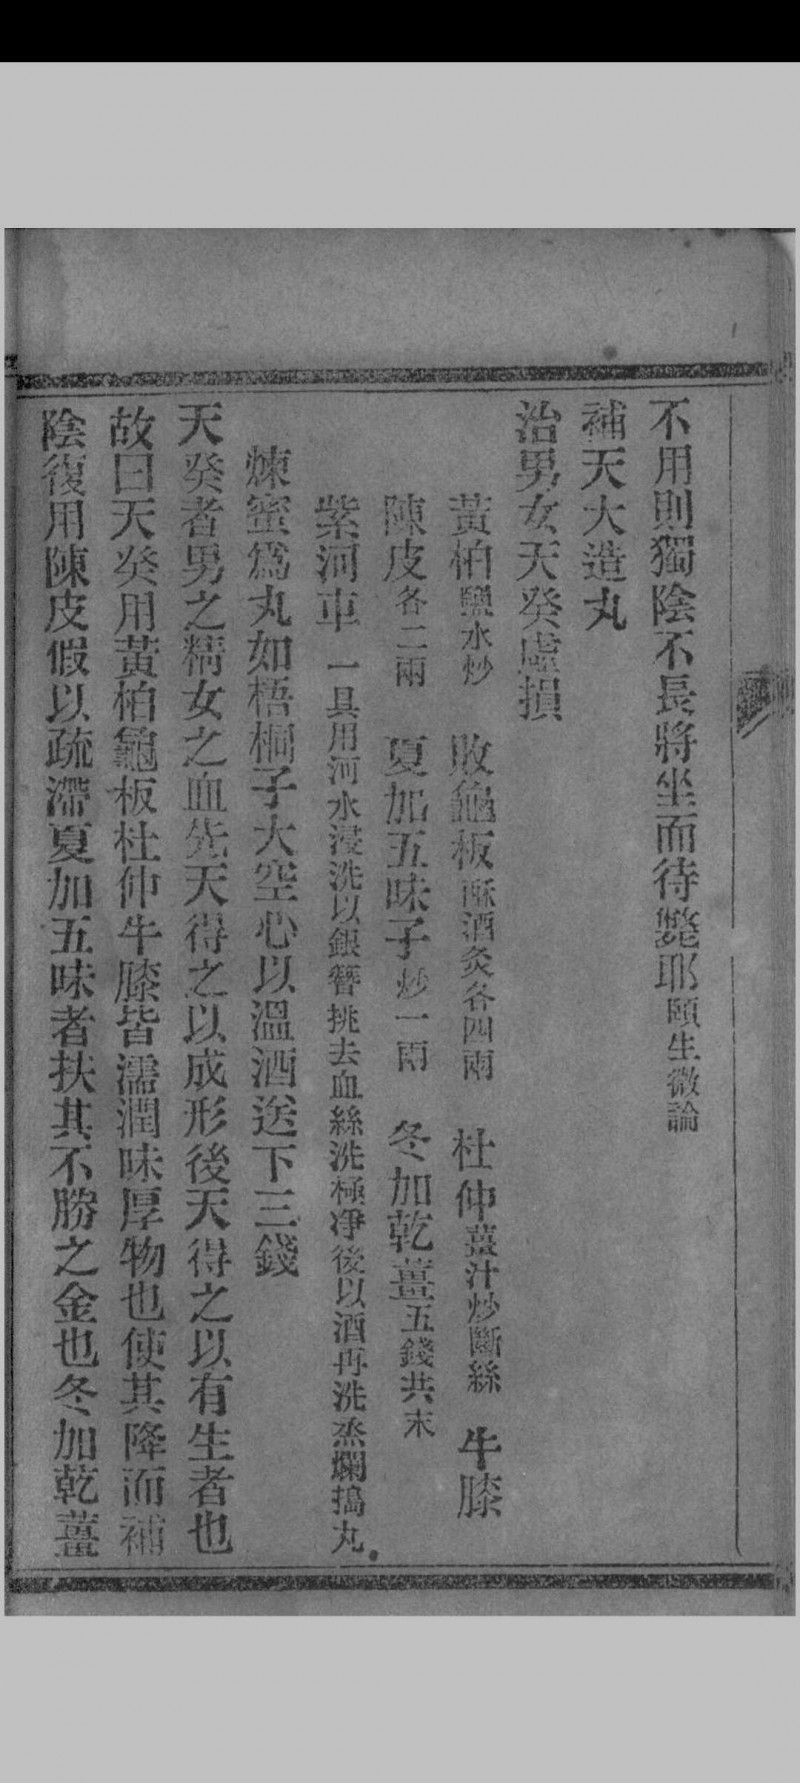 不用則獨陰不長將坐而待斃耶頤生微論
補天大造丸
治男女天癸虛損
黃柏鹽水炒　敗龜板酥酒炙各四兩　杜仲薑汁炒斷絲　牛膝
陳皮各二兩　夏加五味子炒一兩　冬加乾薑五錢共末
紫河車一具用河水浸洗以銀簪挑去血絲洗極淨後以酒再洗烝爛搗丸
煉蜜爲丸如梧桐子大空心以溫酒送下三錢
天癸者男之精女之血先天得之以成形後天得之以有生者也
故曰天癸用黃柏龜板杜仲牛膝皆濡潤味厚物也使其降而補
陰復用陳皮假以疏滯夏加五味者扶其不勝之金也冬加乾薑